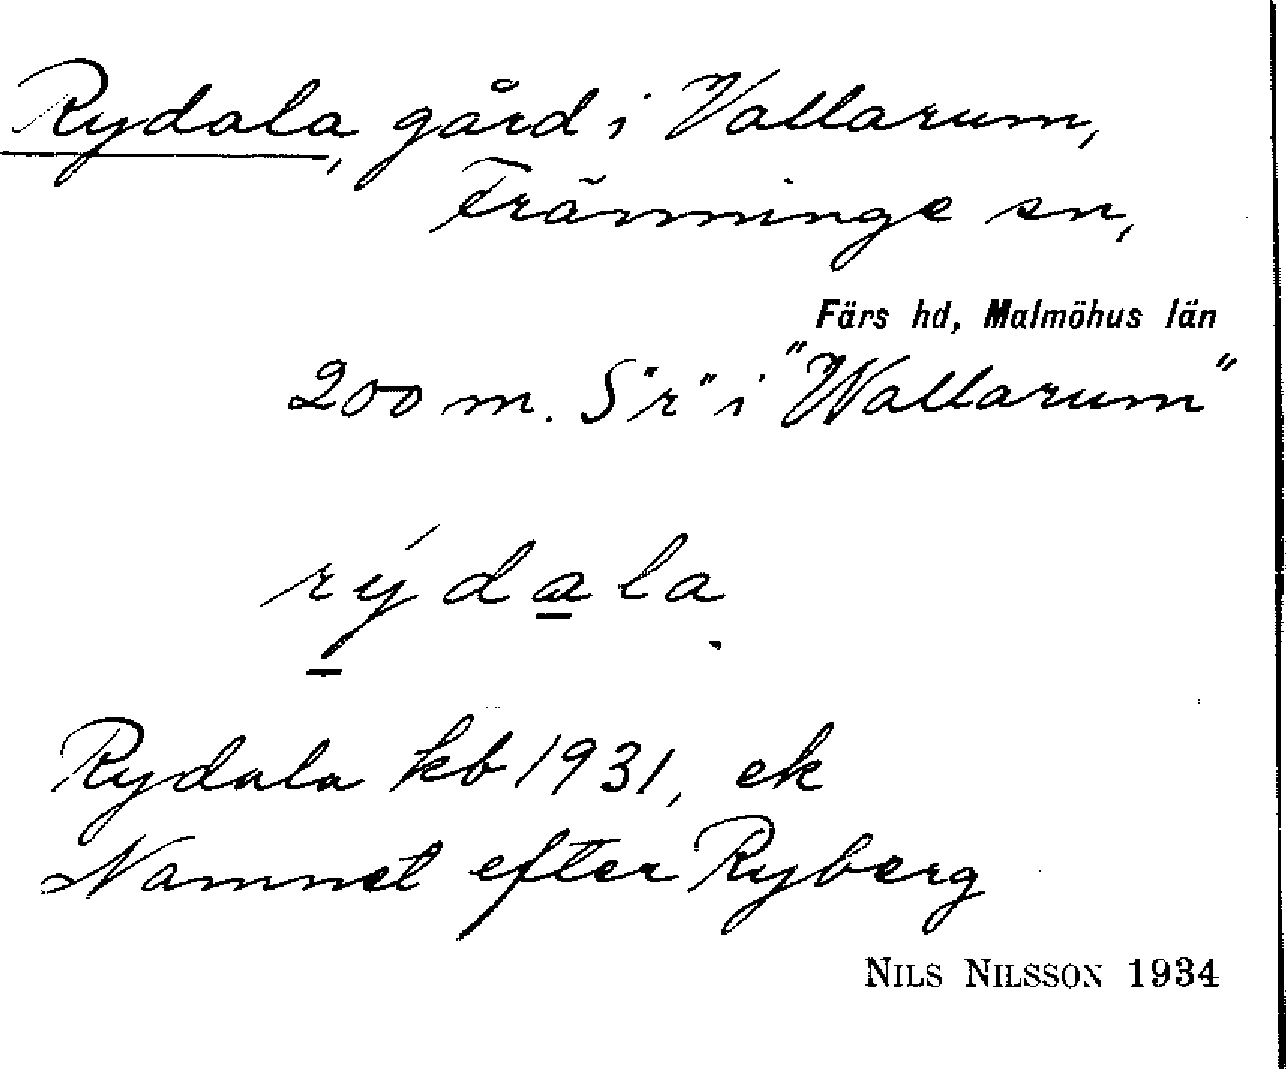 Rydala, gård i Vallarum,
Fränninge sn,
Färs hd, Malmöhus län
200 m. S "r" i "Wallarum"
rýdala
Rydala kb 1931, ek
Namnet efter Ryberg
NILS NILSSON 1934